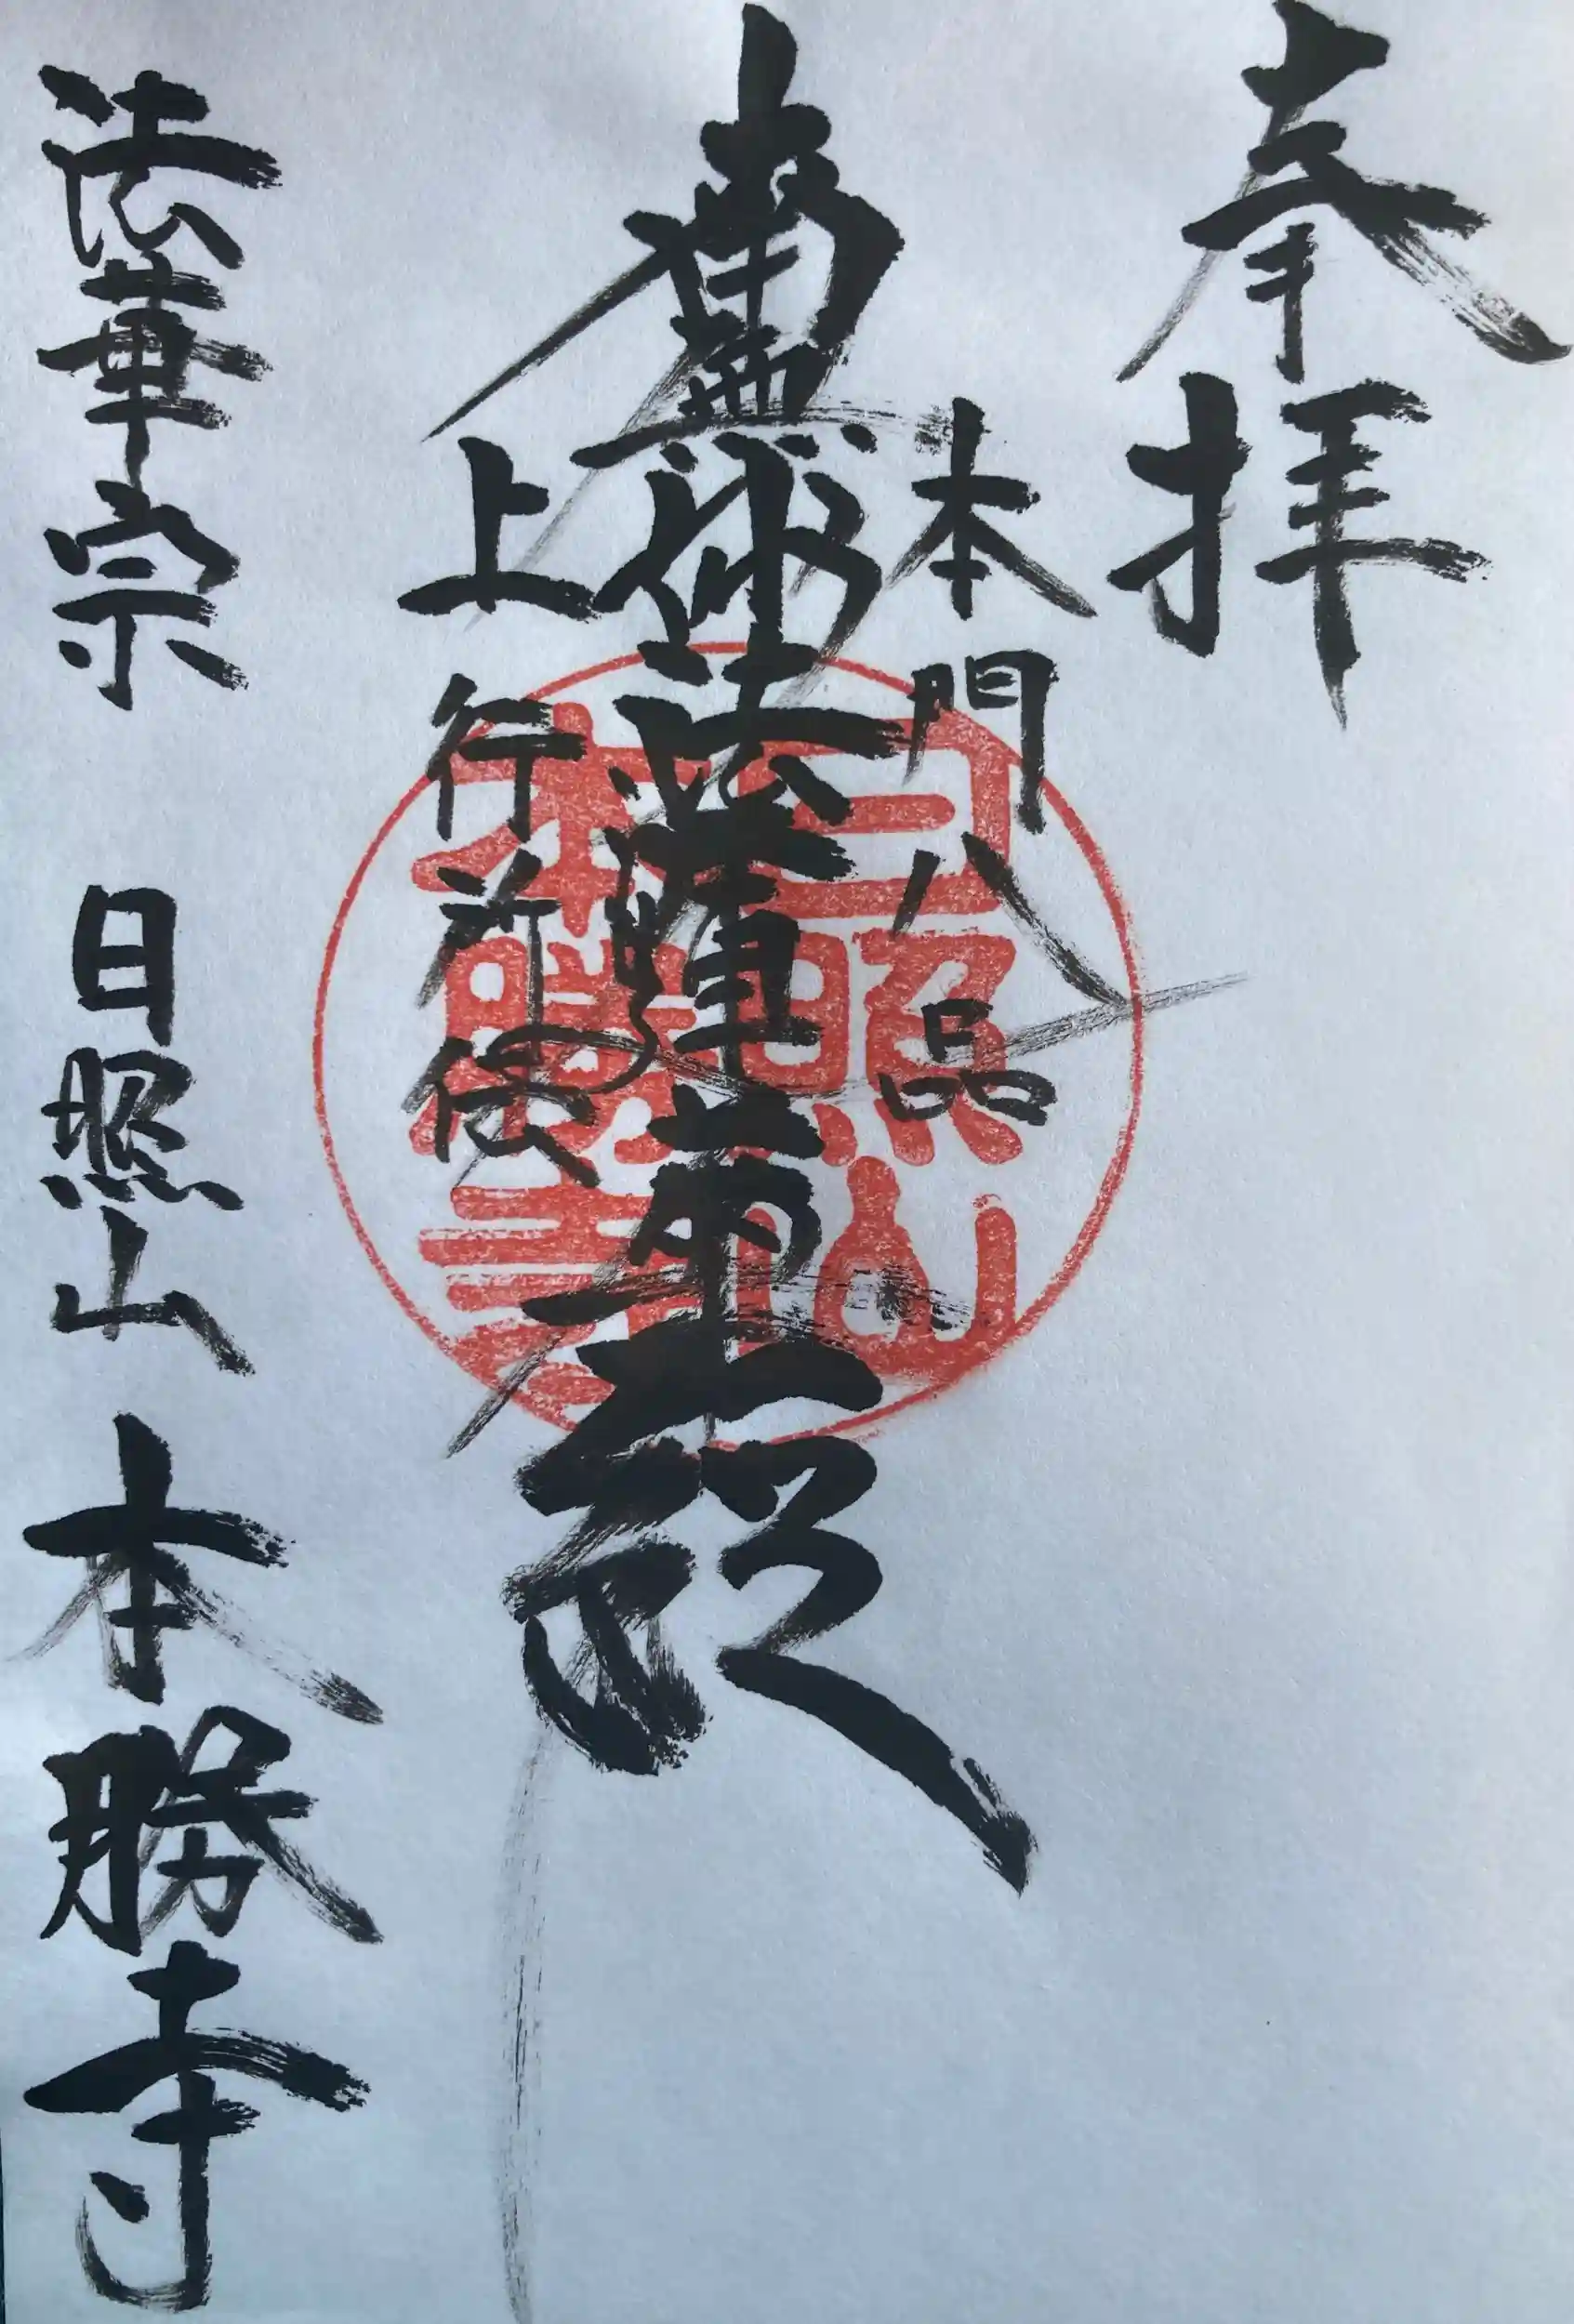 奉拝
本門八品
南無妙法蓮華経
上行所傳
法華宗 日照山 本勝寺
日照山
本勝寺